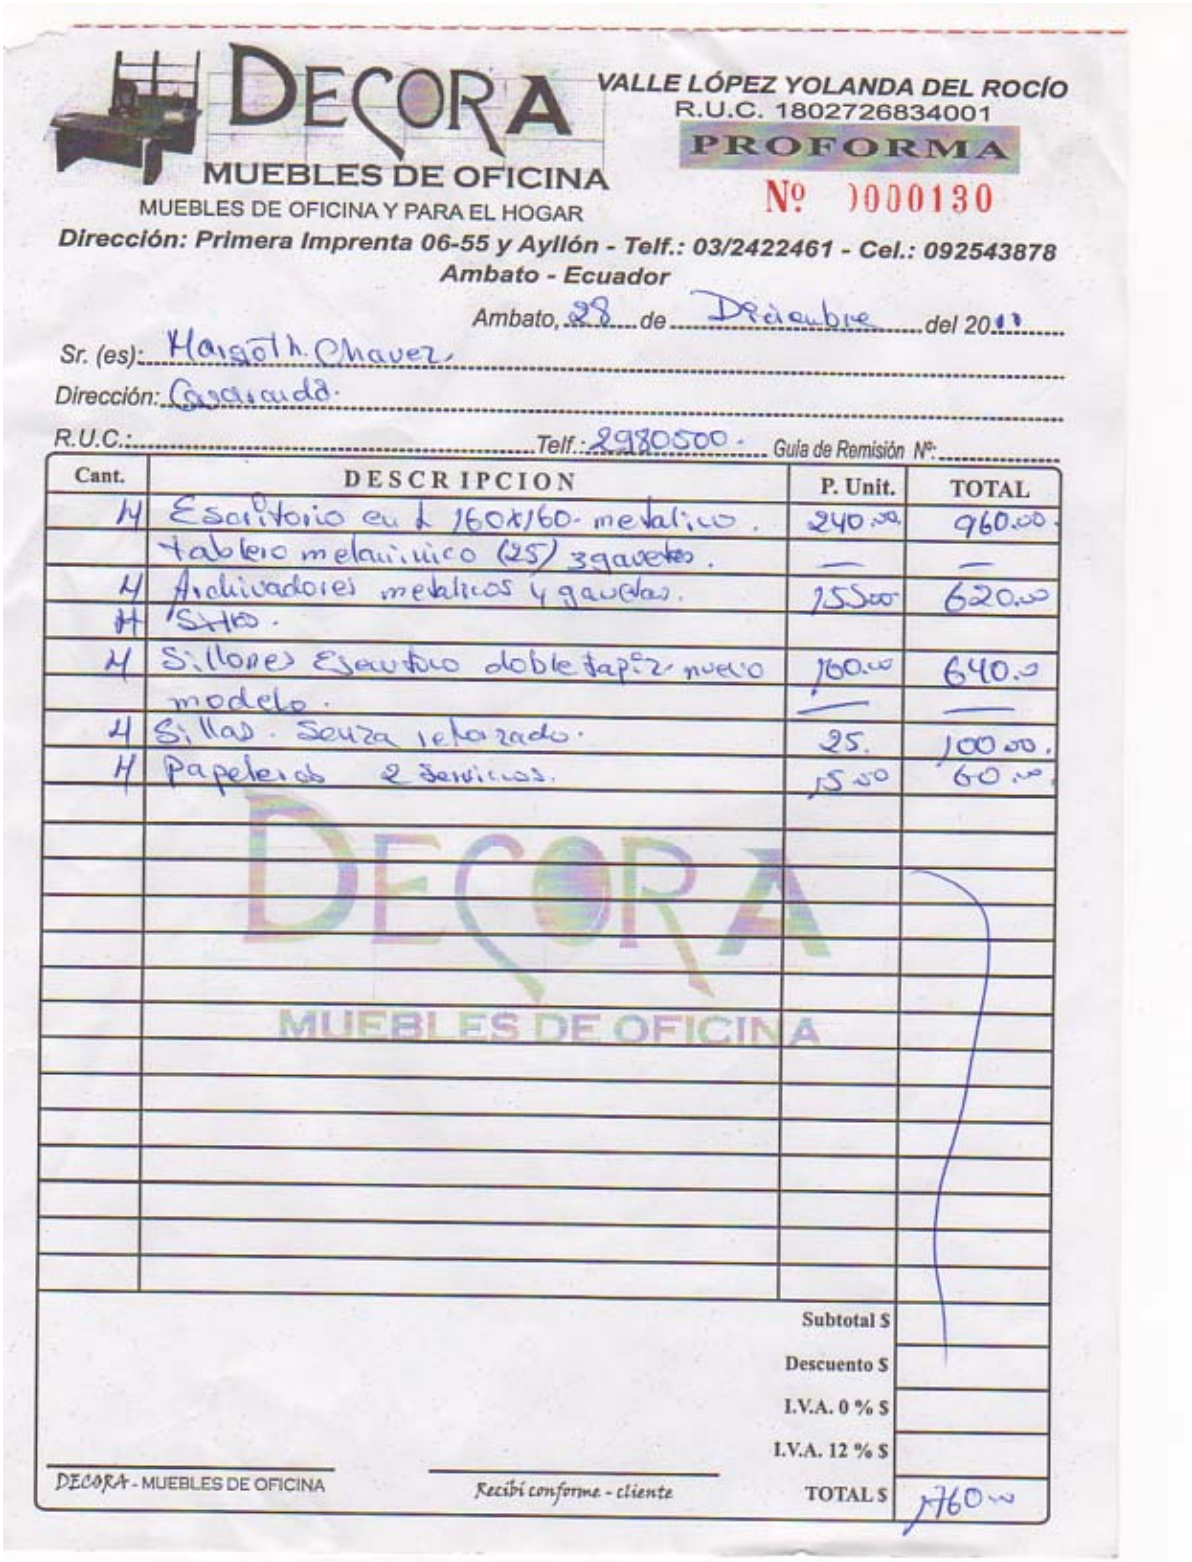 DECORA
MUEBLES DE OFICINA
MUEBLES DE OFICINA Y PARA EL HOGAR
VALLE LÓPEZ YOLANDA DEL ROCÍO
R.U.C. 1802726834001
PROFORMA
Nº 0000130
Dirección: Primera Imprenta 06-55 y Ayllón - Telf.: 03/2422461 - Cel.: 092543878
Ambato - Ecuador
Ambato, 28 de Diciembre del 2011
Sr. (es): Margoth. Chavez.
Dirección:
R.U.C.: Telf.: 2980500. Guía de Remisión Nº:
Cant. DESCRIPCION P. Unit. TOTAL
4 Escritorio en L 160x160- metalico. 240.00 960.00.
tablero melaminico (25) 3 gavetas. — —
4 Archivadores metalicos 4 gavetas. 155.00 620.00
4
4 Sillones Ejecutivo doble tapiz nuevo 160.00 640.00
modelo. — —
4 Sillas. Senza reforzado. 25. 100.00.
4 Papeleras 2 servicios. 15.00 60.00
DECORA
MUEBLES DE OFICINA
Subtotal $
Descuento $
I.V.A. 0 % $
I.V.A. 12 % $
DECORA - MUEBLES DE OFICINA Recibí conforme - cliente TOTAL $